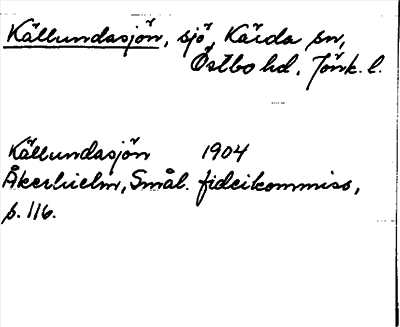 Källundasjön, sjö, Kärda sn,
Östbo hd. Jönk. l.
Källundasjön 1904
Åkerhielm, Smål. fideikommiss,
s. 116.